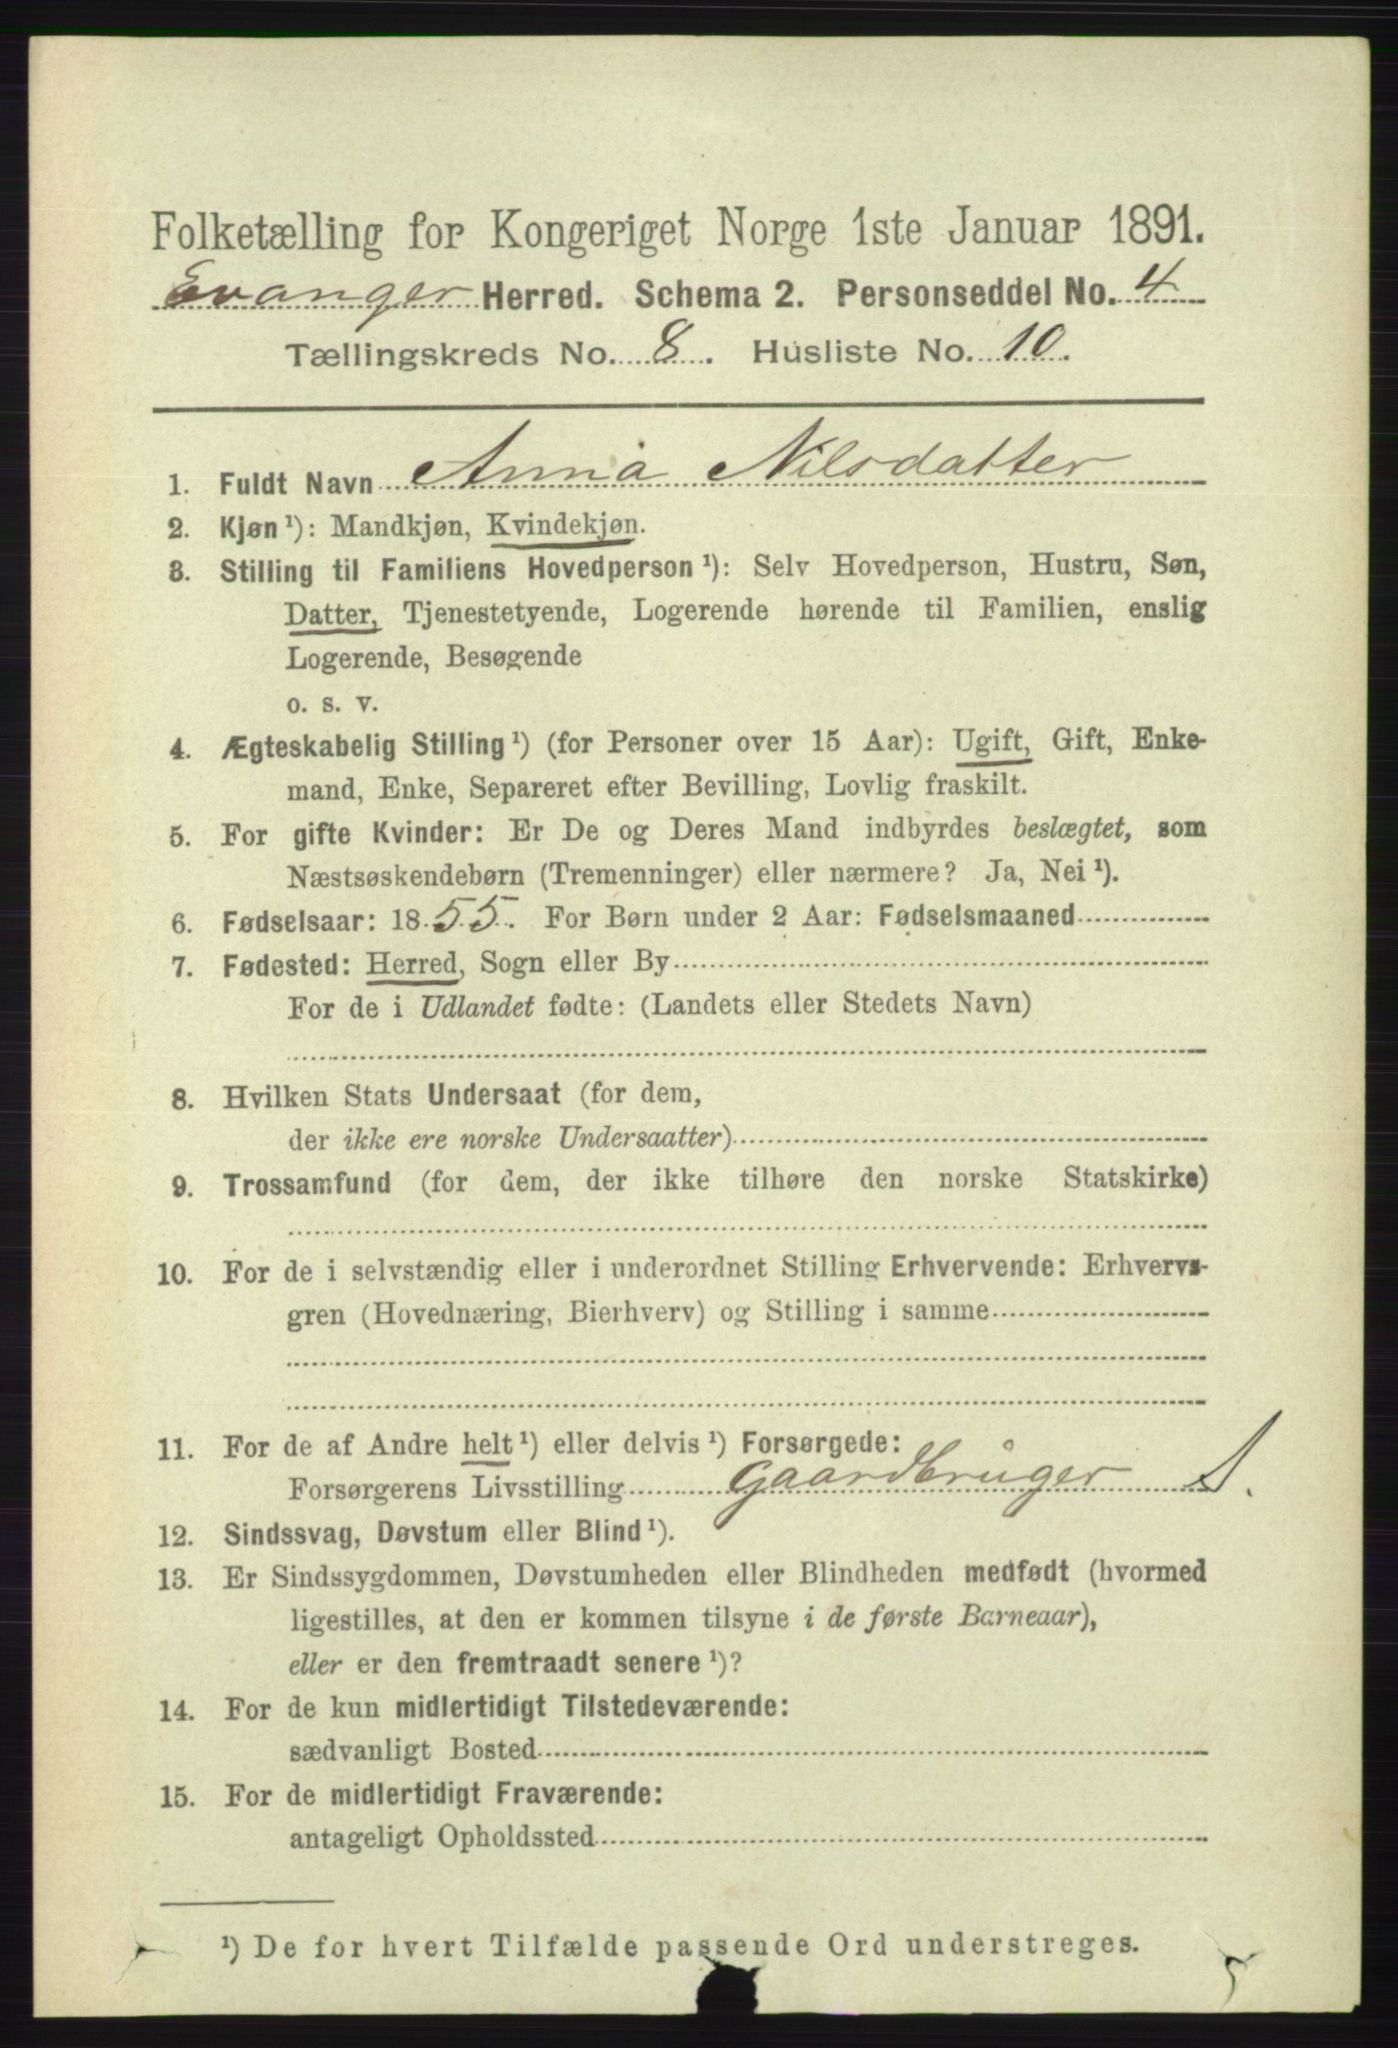 Folketælling for Kongeriget Norge 1ste Januar 1891.
Evanger Herred. Schema 2. Personseddel No. 4
Tællingskreds No. 8. Husliste No. 10.
1. Fuldt Navn Anna Nilsdatter
2. Kjøn¹): Mandkjøn, Kvindekjøn.
3. Stilling til Familiens Hovedperson¹): Selv Hovedperson, Hustru, Søn,
Datter, Tjenestetyende, Logerende hørende til Familien, enslig
Logerende, Besøgende
o. s. v.
4. Ægteskabelig Stilling¹) (for Personer over 15 Aar): Ugift, Gift, Enke-
mand, Enke, Separeret efter Bevilling, Lovlig fraskilt.
5. For gifte Kvinder: Er De og Deres Mand indbyrdes beslægtet, som
Næstsøskendebørn (Tremenninger) eller nærmere? Ja, Nei¹).
6. Fødselsaar: 1855. For Børn under 2 Aar: Fødselsmaaned
7. Fødested: Herred, Sogn eller By
For de i Udlandet fødte: (Landets eller Stedets Navn)
8. Hvilken Stats Undersaat (for dem,
der ikke ere norske Undersaatter)
9. Trossamfund (for dem, der ikke tilhøre den norske Statskirke)
10. For de i selvstændig eller i underordnet Stilling Erhvervende: Erhvervs-
gren (Hovednæring, Bierhverv) og Stilling i samme
11. For de af Andre helt¹) eller delvis¹) Forsørgede:
Forsørgerens Livsstilling Gaardbrúger S.
12. Sindssvag, Døvstum eller Blind¹).
13. Er Sindssygdommen, Døvstumheden eller Blindheden medfødt (hvormed
ligestilles, at den er kommen tilsyne i de første Barneaar),
eller er den fremtraadt senere¹)?
14. For de kun midlertidigt Tilstedeværende:
sædvanligt Bosted
15. For de midlertidigt Fraværende:
antageligt Opholdssted
¹) De for hvert Tilfælde passende Ord understreges.